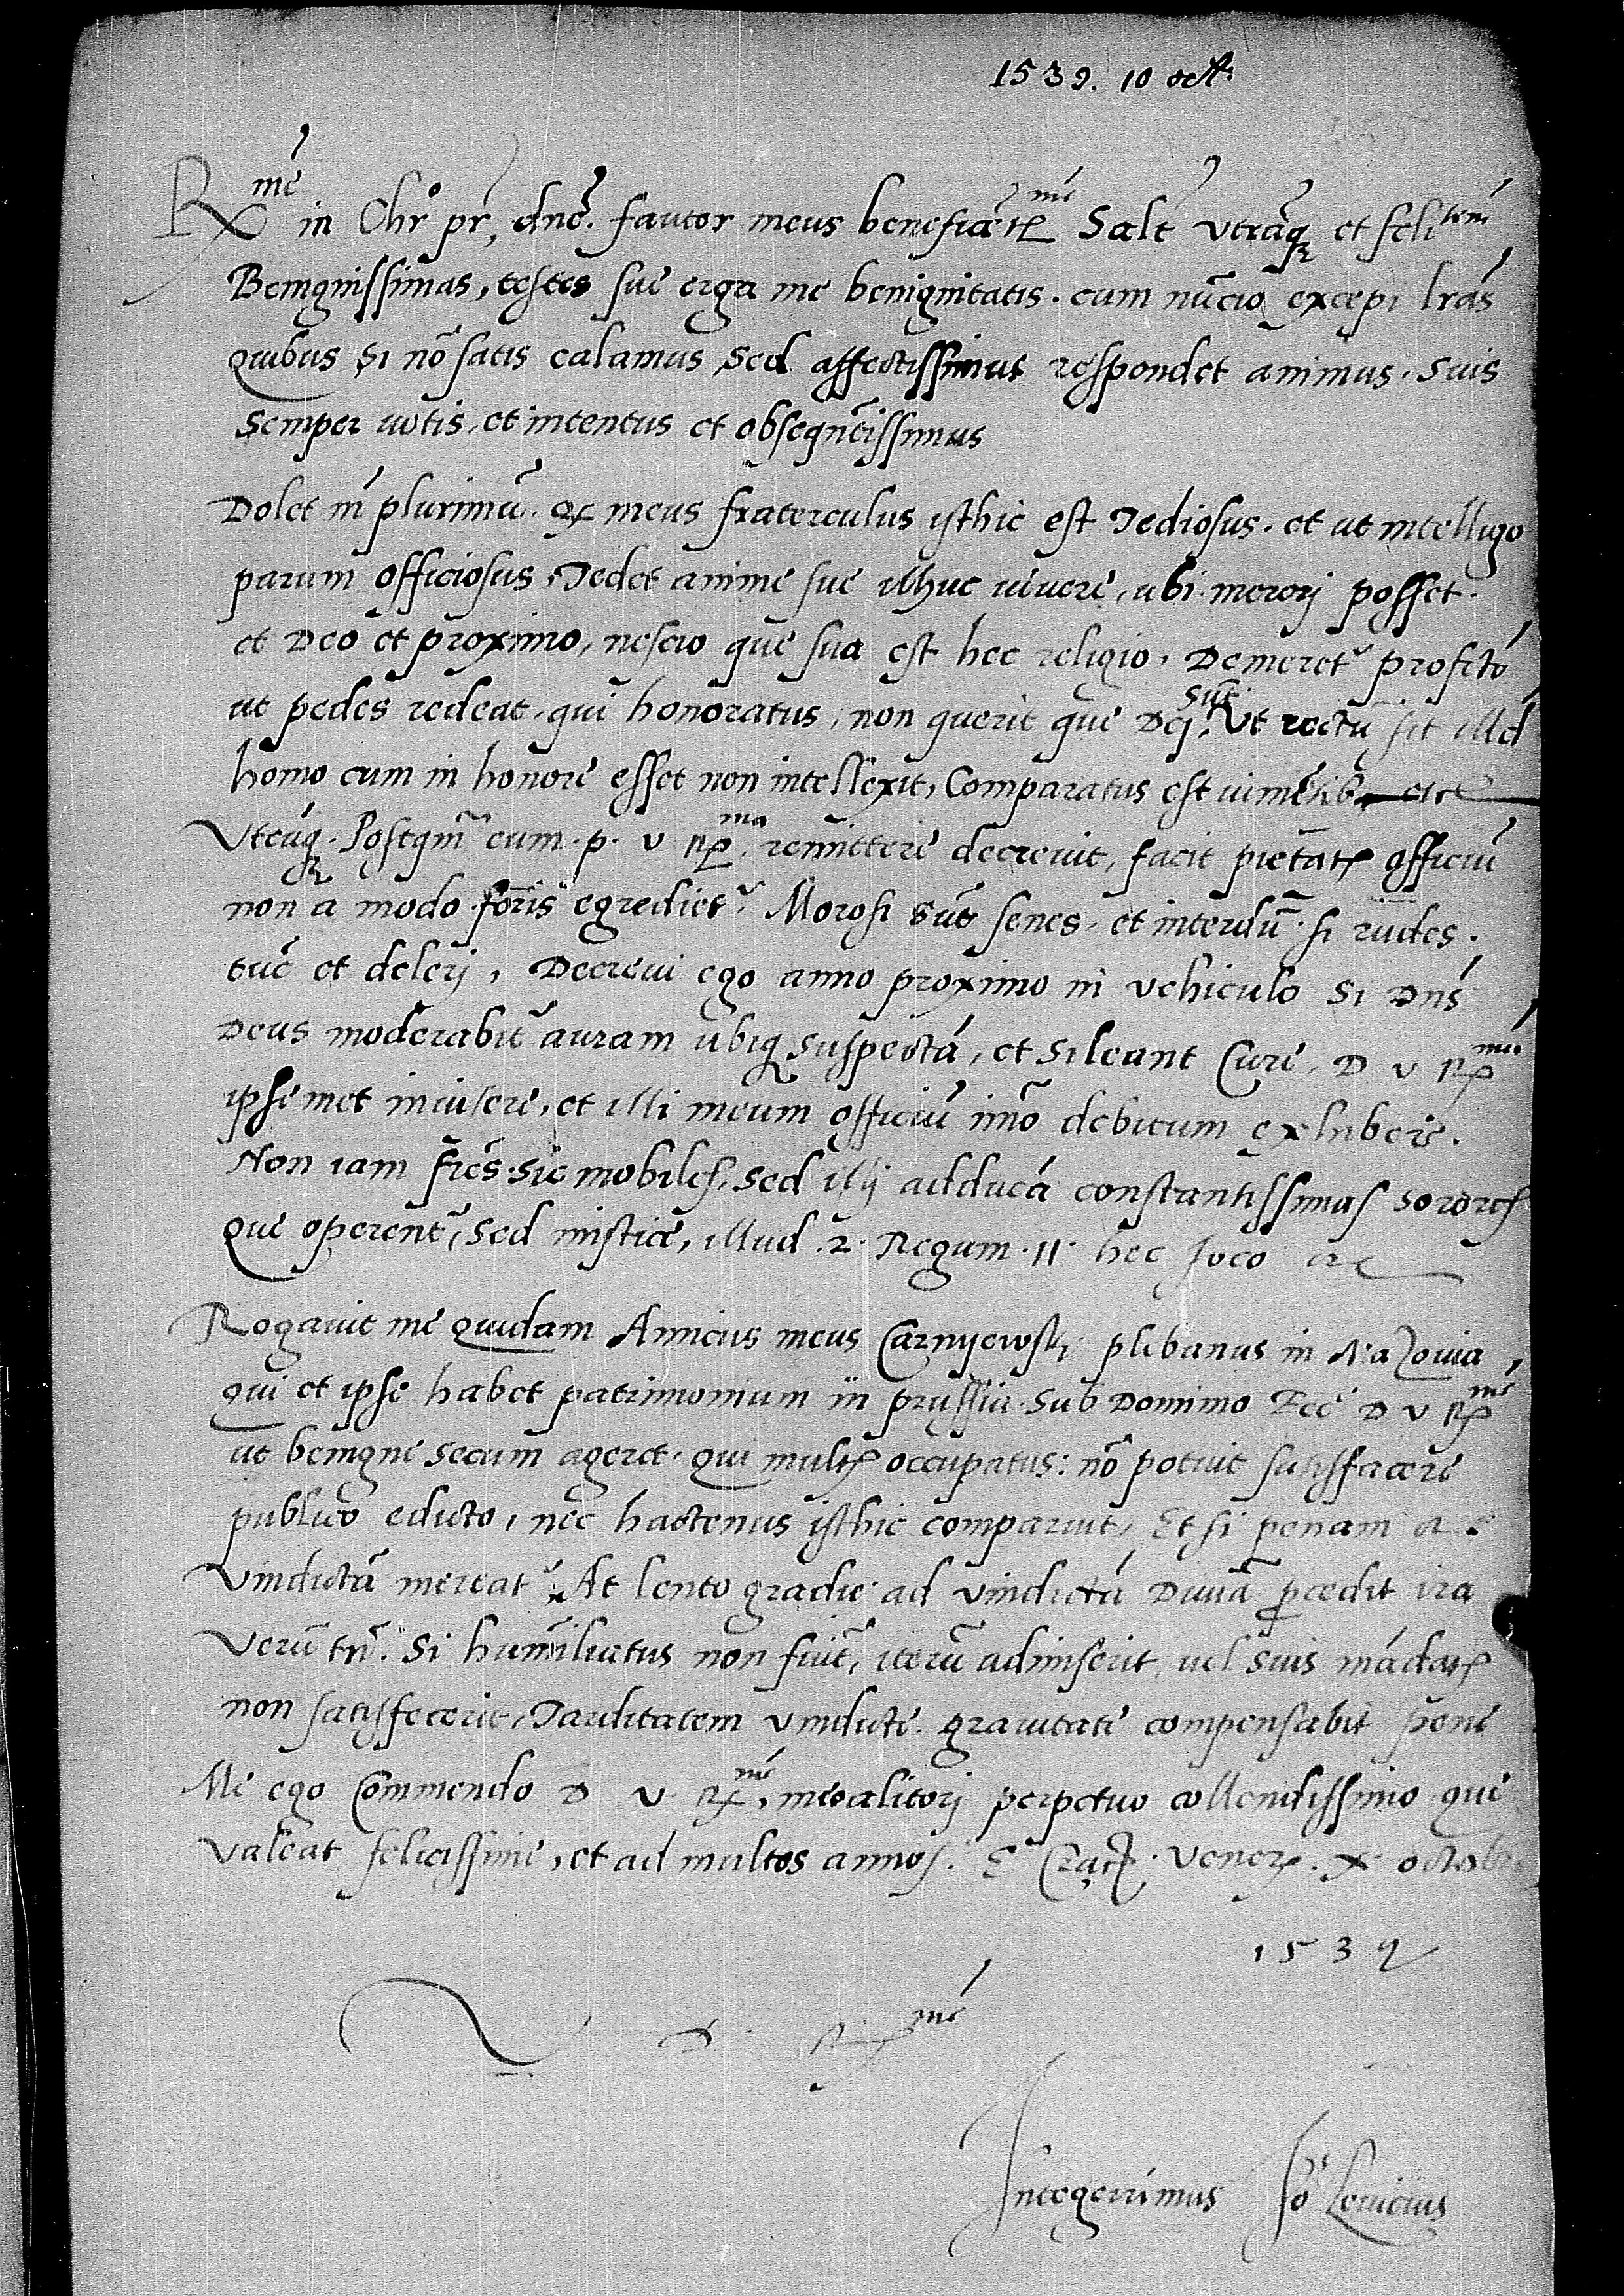 1539. 10 oct.
Rx^me in Chrˀ pr̄, dne. fautor meus beneficetꝭ^me Salt̄ utraqꝫ et feli^tem
Benignissimas, testes sue erga me benignitatis. cum nūcio excepi lrās
quibus si nō satis calamus sed affectissimus respondet animus. suis
semper uotis, et intentus et obseqn̄tissimus
Dolet m̄ plurimū. qꝫ meus fraterculus isthic est Tediosus. et ut intelligo
parum officiosus, Tedet anime sue illhuc uiuere, ubi mererj posset.
et Deo et proximo, nescio que sua est hec religio. Demeret᷑ profecto
ut pedes redeat, qui honoratus, non querit que Dej, sūt Ut rectū sit illd
homo cum in honore esset non intellexit, Comparatus est iumētis etc
Utcūqꝫ. Postqm̄ eum. p. v Rꝫ^ma, remittere decreuit, facit pietatꝭ officiū
non a modo foris egrediet᷑. Morosi sūt senes, et interdū si rudes.
tūc et delerj, Decreui ego anno proximo in vehiculo si Dn̄s
Deus moderabit᷑ auram ubiqꝫ suspectā, et sileant Cure, D v Rꝫ^me
ipsemet inuisere, et illi meum officiū īmo debitum exhibere.
Non iam fr̄es sic mobiles, sed illi adducā constantissimas sorores
que operent᷑, sed mistice, illud. 2. Regum. 11. hec Joco etc
Rogauit me quidam Amicus meus Carnyewskj plebanus in Mazouia,
qui et ipse habet patrimonium in prussia sub Dominio Ecc̄ D v Rꝫ^me
ut benigne secum ageret. qui multꝭ occupatus: nō potuit satisfacere
publico edicto, nec hactenus isthic comparuit, Et si penam
Vindictā mereat᷑, At lento gradu ad vindictā Diuiā p̄cedit ira
Verū tn̄. Si humiliatus non fuit᷑, iterū admiserit, uel suis mādatꝭ
non satisfecerit, Tarditatem vindicte grauitate compensabit pene
Me ego Commendo D v. Rꝫ^me, meo altori perpetuo collendissimo que
Valeat felicissime, et ad multos annos. E Crac̄. Venerꝭ. X octobr
1539
V D Rx^me
Integerrimus Jo Leuicius